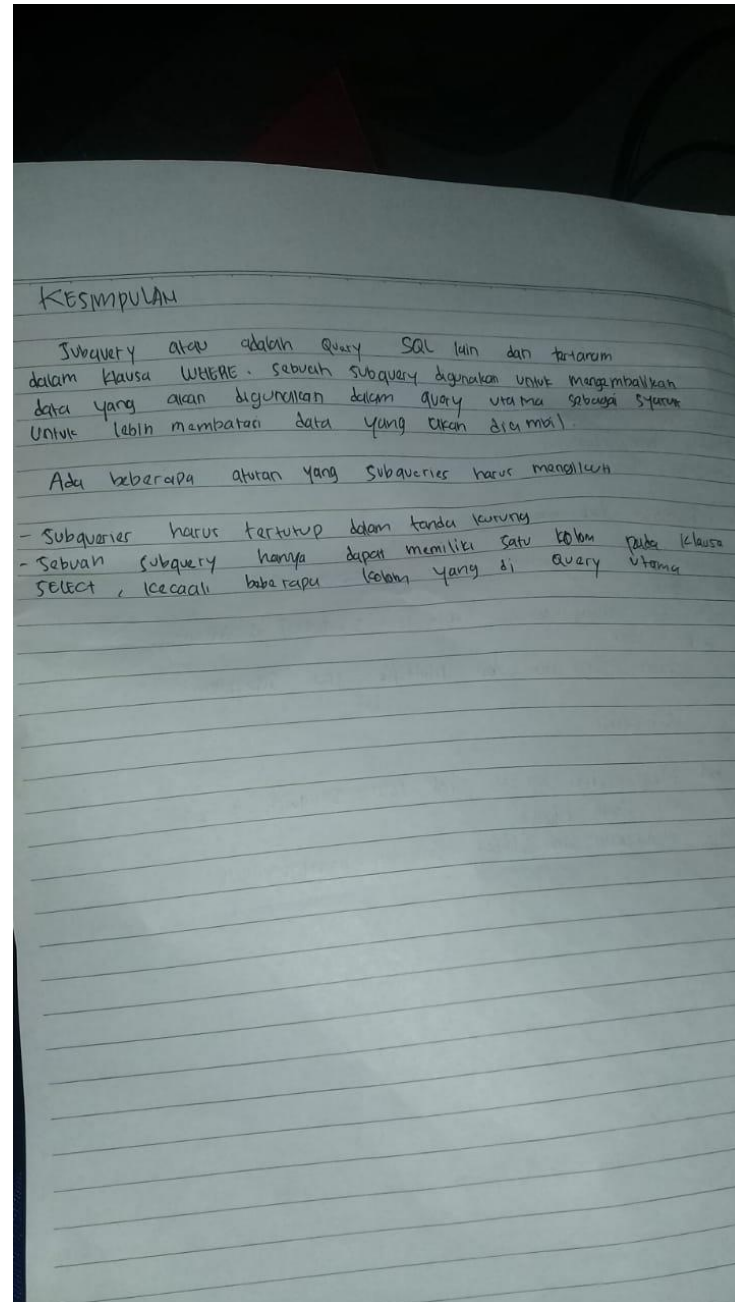 KESIMPULAN
Subquery atau adalah Query SQL lain dan tertanam
dalam klausa WHERE. Sebuah subquery digunakan untuk mengembalikan
data yang akan digunakan dalam query utama sebagai syarat
Untuk lebih membatasi data yang akan diambil.
Ada beberapa aturan yang Subqueries harus mengikuti
- Subqueries harus tertutup dalam tanda kurung
- Sebuah subquery hanya dapat memiliki satu kolom pada klausa
SELECT, kecaali beberapa kolom yang di query utama